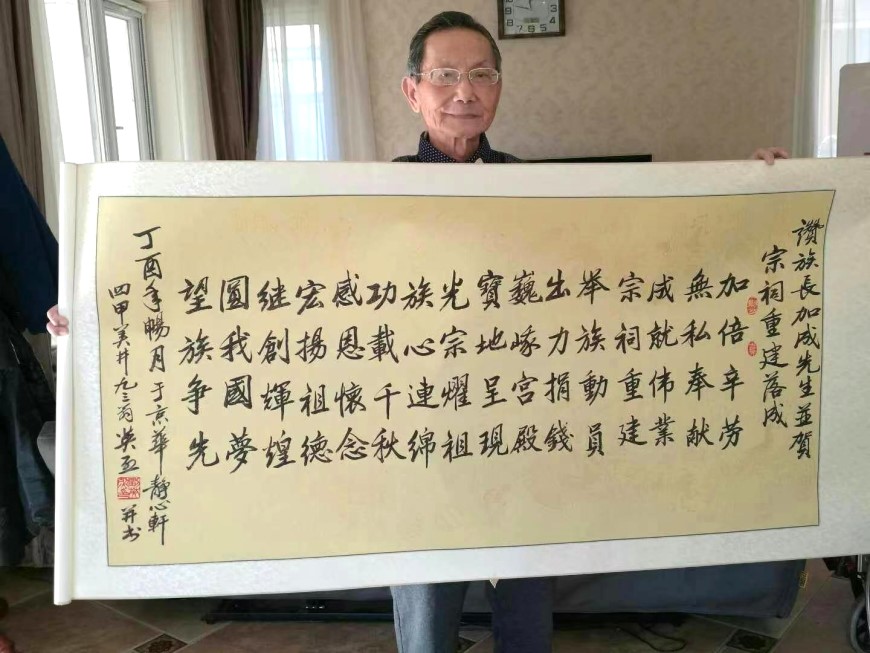 讚族長加成先生並賀
宗祠重建落成
加倍辛劳
無私奉献
成就伟業
宗祠重建
举族動員
出力捐錢
巍峩宫殿
寶地呈現
光宗耀祖
族心連綿
功載千秋
感恩懷念
宏揚祖德
继創輝煌
圓我國夢
望族争先
丁酉年暢月于京華靜心軒
四甲美井九三翁并书